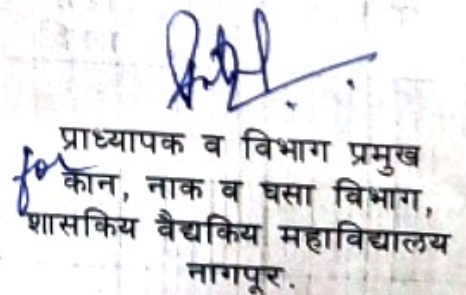 प्राध्यापक व विभाग प्रमुख
for कान, नाक व घसा विभाग,
शासकिय वैद्यकिय महाविद्यालय
नागपूर.